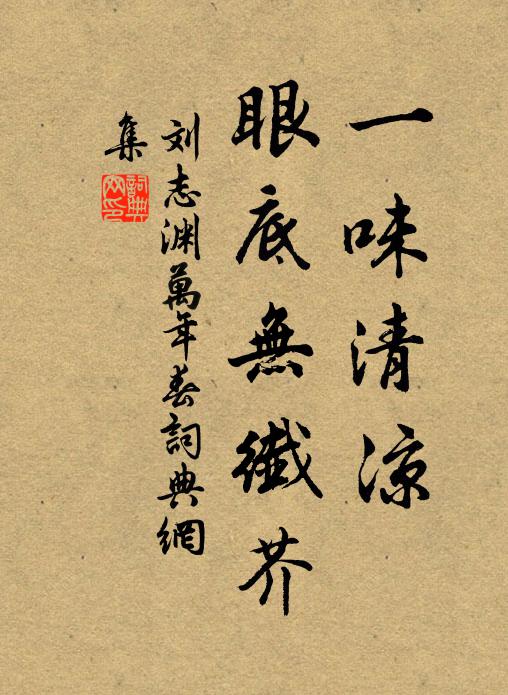 一味清涼
眼底無纖芥
刘志渊萬年春詞典網
集
詞典网印